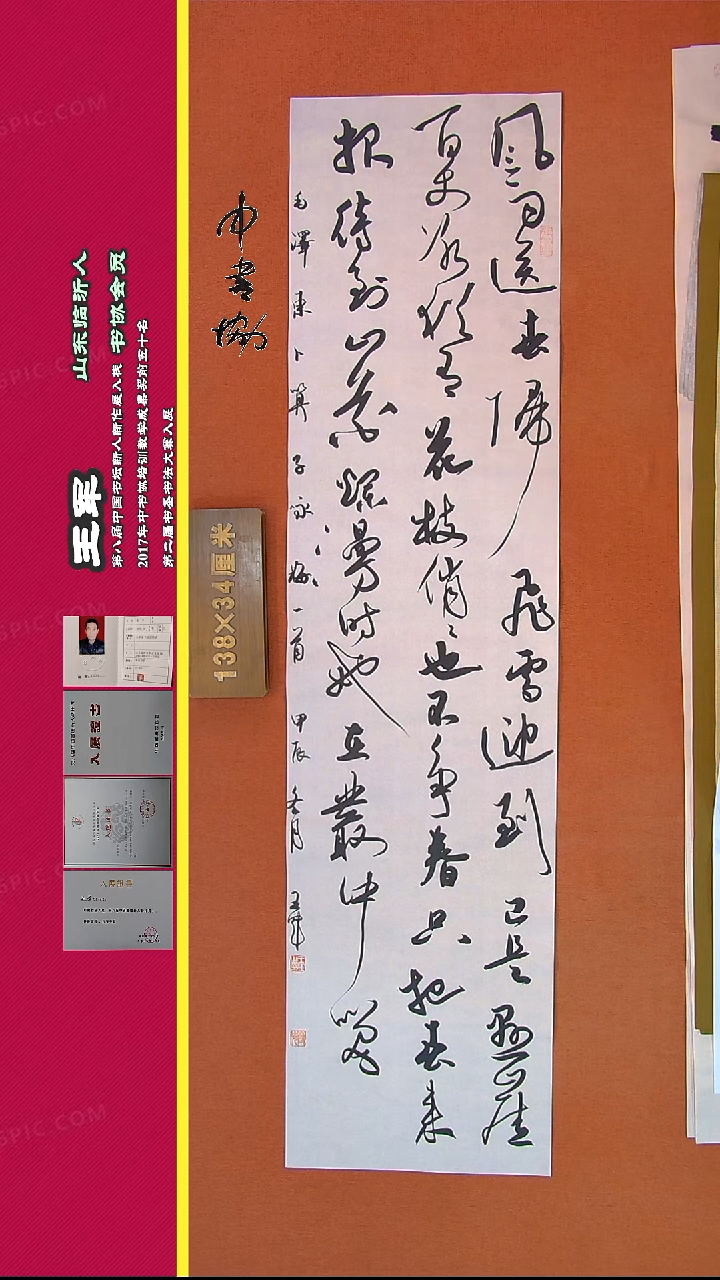 风雨送春归飞雪迎到已是悬崖
百丈冰犹有花枝俏俏也不争春只把春来
报待到山花烂漫时她在丛中笑
毛泽东卜算子咏梅一首 甲辰冬月 王军
中书协
138×34厘米
山东临沂人
书协会员
王军
第八届中国书坛新人新作展入展
2017年中书协培训教学成果奖前五十名
第二届书圣书法大军入展
入展证书